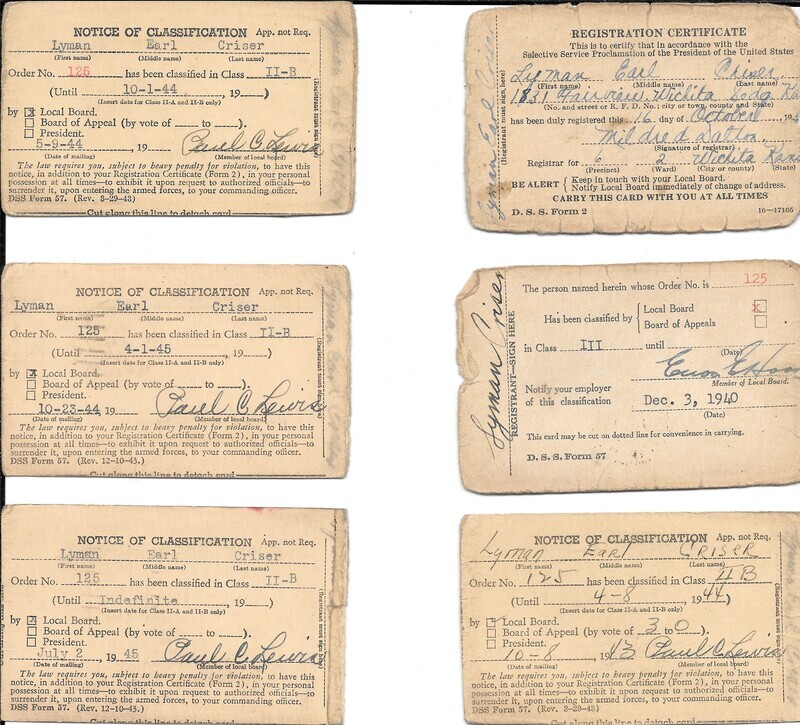 NOTICE OF CLASSIFICATION App. not Req.
Lyman Earl Criser
(First name) (Middle name) (Last name)
Order No. 125 has been classified in Class II-B
(Until 10-1-44 , 19 )
(Insert date for Class II-A and II-B only)
by ☒ Local Board.
☐ Board of Appeal (by vote of to ).
☐ President.
5-9-44 , 19 Paul C. Lewis
(Date of mailing) (Member of local board)
The law requires you, subject to heavy penalty for violation, to have this
notice, in addition to your Registration Certificate (Form 2), in your personal
possession at all times—to exhibit it upon request to authorized officials—to
surrender it, upon entering the armed forces, to your commanding officer.
DSS Form 57. (Rev. 3-29-43)
Cut along this line to detach card
(Registrant must sign here)
REGISTRATION CERTIFICATE
This is to certify that in accordance with the
Selective Service Proclamation of the President of the United States
Lyman Earl Criser
(First name) (Middle name) (Last name)
1831 Fairview, Wichita Sedg
(No. and street or R. F. D. No.; city or town, county and State)
has been duly registered this 16 day of October , 194
Mildred Dalton
(Signature of registrar)
Registrar for 6 2 Wichita Kans
(Precinct) (Ward) (City or county) (State)
BE ALERT { Keep in touch with your Local Board.
Notify Local Board immediately of change of address.
CARRY THIS CARD WITH YOU AT ALL TIMES
D. S. S. Form 2 16—17105
Lyman Earl Criser
(Registrant must sign here)
NOTICE OF CLASSIFICATION App. not Req.
Lyman Earl Criser
(First name) (Middle name) (Last name)
Order No. 125 has been classified in Class II-B
(Until 4-1-45 , 19 )
(Insert date for Class II-A and II-B only)
by ☒ Local Board.
☐ Board of Appeal (by vote of to ).
☐ President.
10-23-44 19 Paul C. Lewis
(Date of mailing) (Member of local board)
The law requires you, subject to heavy penalty for violation, to have this
notice, in addition to your Registration Certificate (Form 2), in your personal
possession at all times—to exhibit it upon request to authorized officials—to
surrender it, upon entering the armed forces, to your commanding officer.
DSS Form 57. (Rev. 12-10-43.)
Cut along this line to detach card
The person named herein whose Order No. is 125
Has been classified by { Local Board ☒
Board of Appeals ☐
in Class III until
(Date)
Member of Local Board.
Notify your employer
of this classification Dec. 3, 1940
(Date)
This card may be cut on dotted line for convenience in carrying.
D. S. S. Form 57
Lyman Criser
REGISTRANT—SIGN HERE
NOTICE OF CLASSIFICATION App. not Req.
Lyman Earl Criser
(First name) (Middle name) (Last name)
Order No. 125 has been classified in Class II-B
(Until Indefinite , 19 )
(Insert date for Class II-A and II-B only)
by ☒ Local Board.
☐ Board of Appeal (by vote of to ).
☐ President.
July 2 , 19 45 Paul C. Lewis
(Date of mailing) (Member of local board)
The law requires you, subject to heavy penalty for violation, to have this
notice, in addition to your Registration Certificate (Form 2), in your personal
possession at all times—to exhibit it upon request to authorized officials—to
surrender it, upon entering the armed forces, to your commanding officer.
DSS Form 57. (Rev. 12-10-43.)
NOTICE OF CLASSIFICATION App. not Req.
Lyman Earl CRISER
(First name) (Middle name) (Last name)
Order No. 125 has been classified in Class
(Until 4-8 , 1944 )
(Insert date for Class II-A and II-B only)
by ☐ Local Board.
☐ Board of Appeal (by vote of 3 to 0 ).
☐ President.
10-8 , 1943 Paul C. Lewis
(Date of mailing) (Member of local board)
The law requires you, subject to heavy penalty for violation, to have this
notice, in addition to your Registration Certificate (Form 2), in your personal
possession at all times—to exhibit it upon request to authorized officials—to
surrender it, upon entering the armed forces, to your commanding officer.
DSS Form 57. (Rev. 3-29-43)